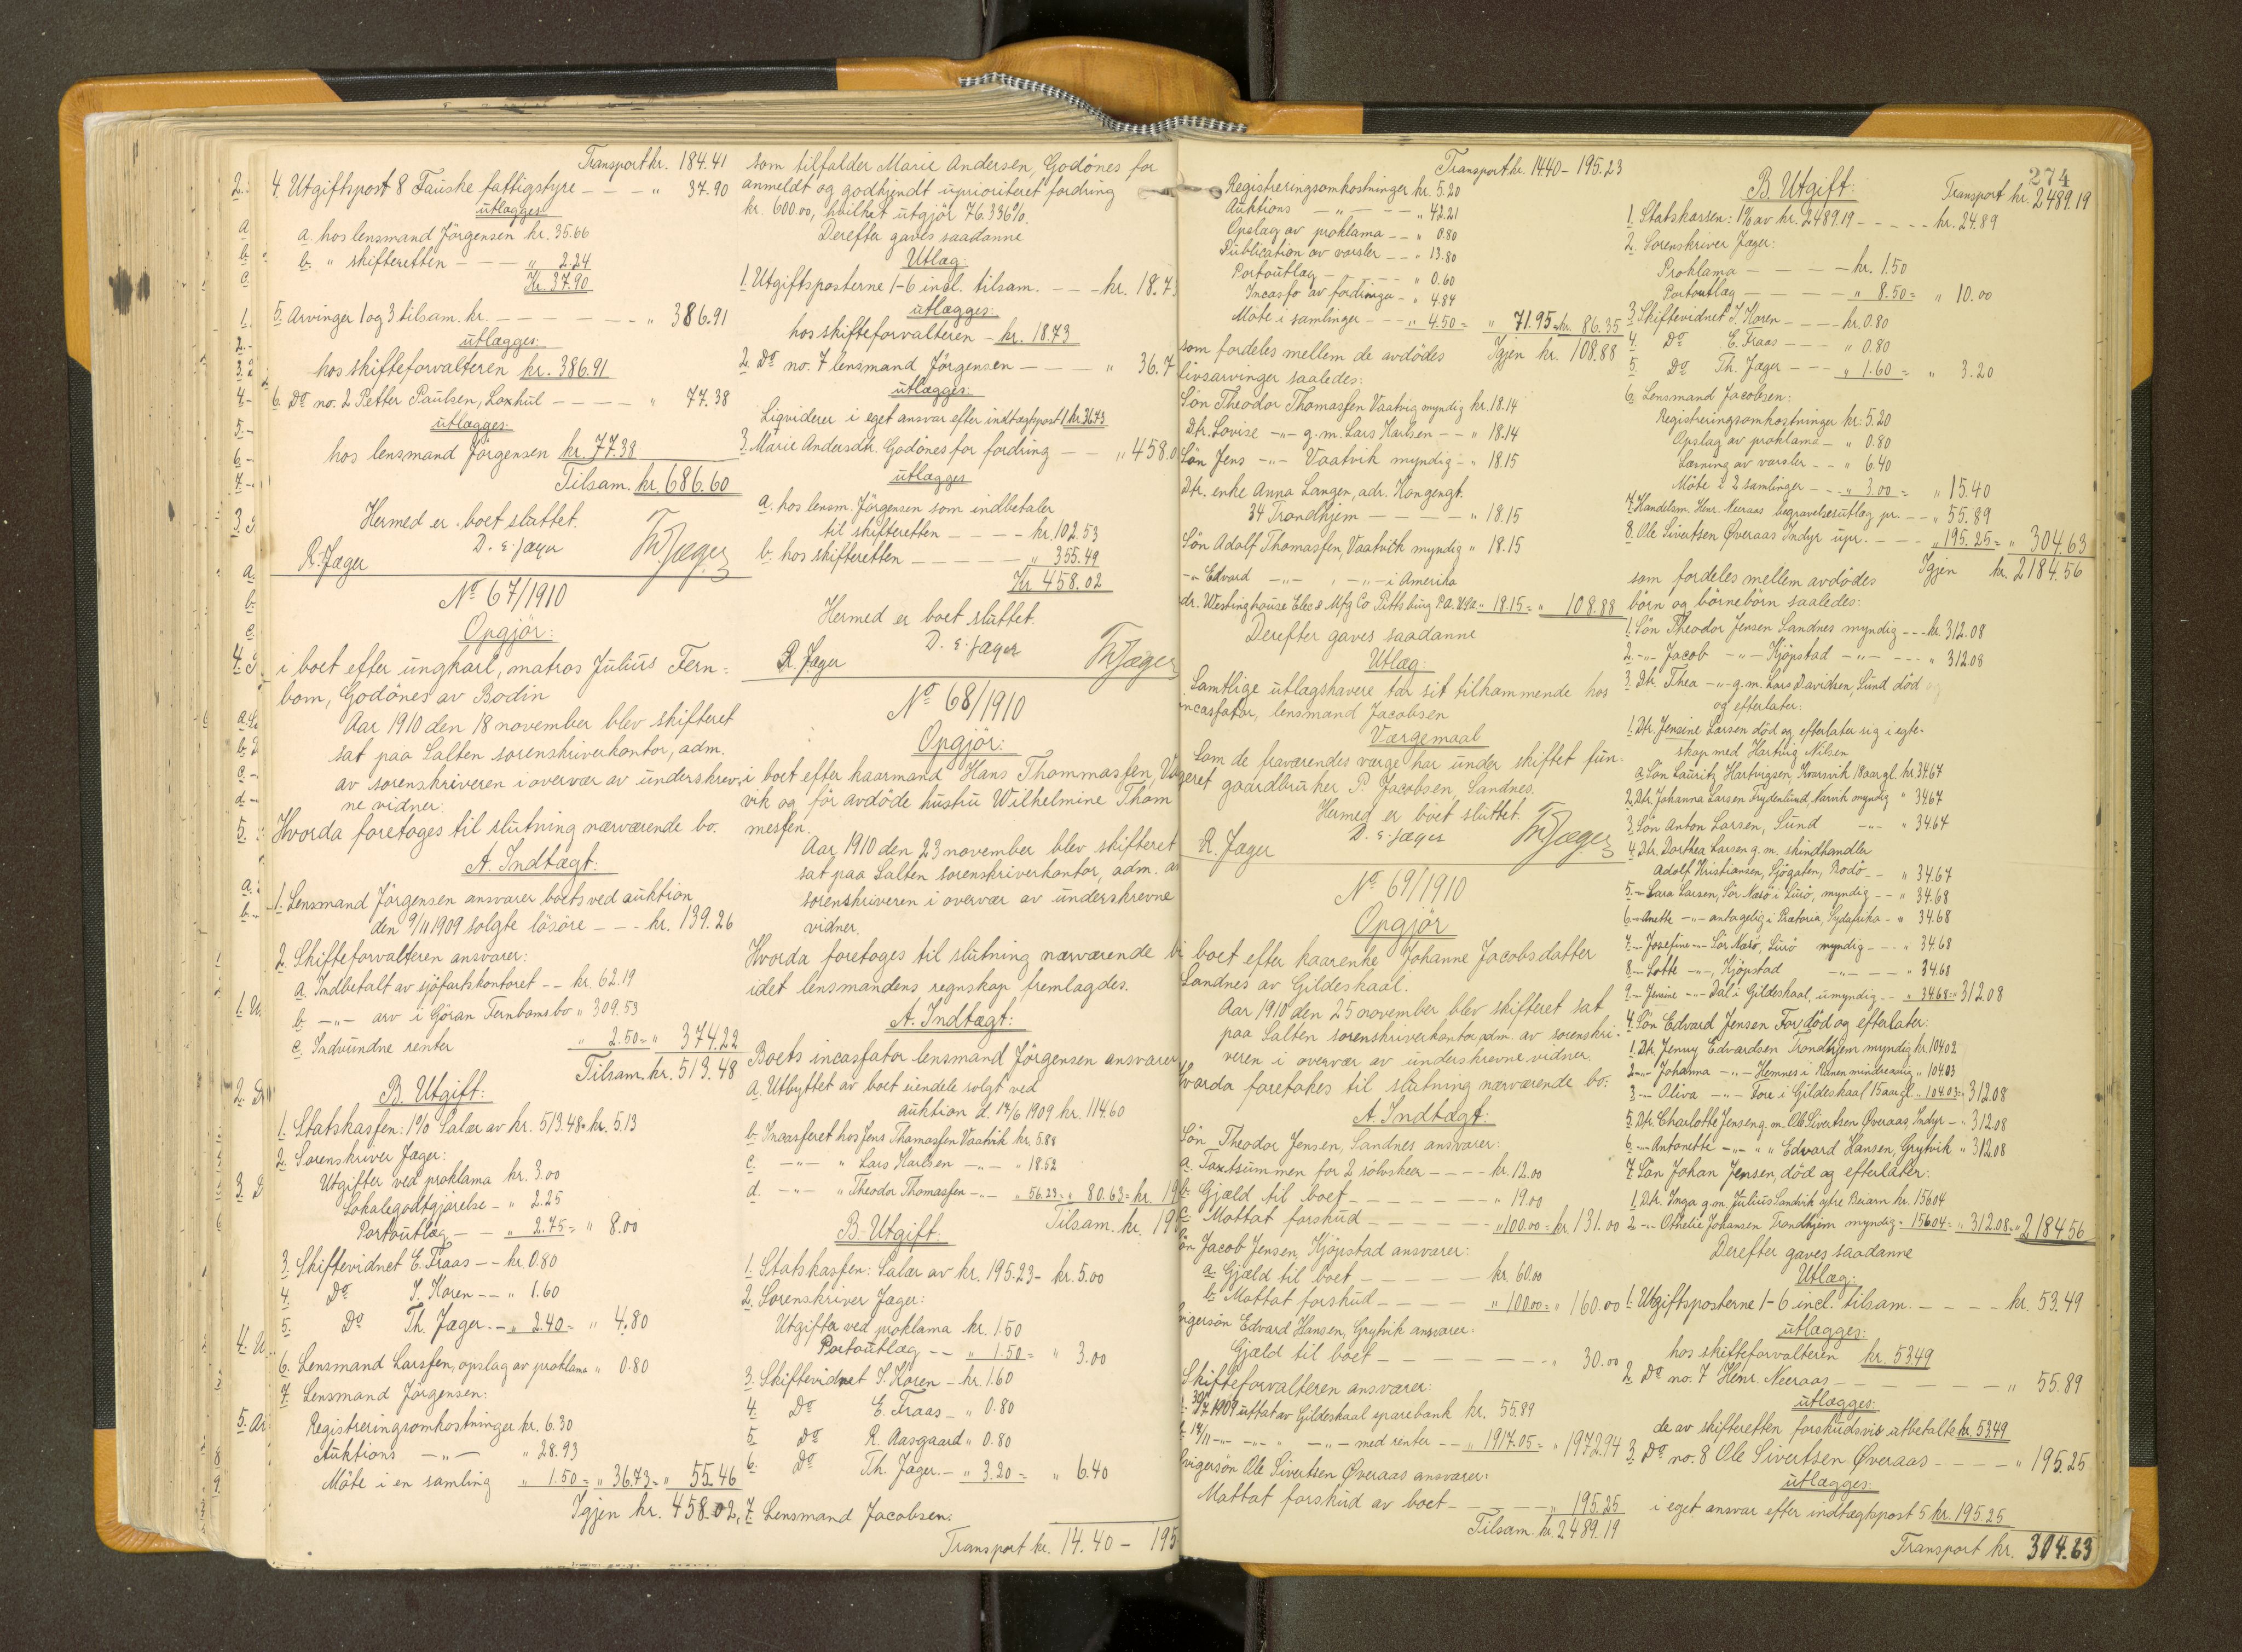 Transport kr. 184.41
4. Utgiftspost 8 Fauske fattigstyre - - - " 37.90
utlægges:
a. hos lensmand Jörgensen kr. 35.66
b. " skifteretten - - - " 2.24
Kr. 37.90
5. Arvinger 1 og 3 tilsam. kr. - - - - - - - " 386.91
utlægges:
hos skifteforvalteren kr. 386.91
6. Do no. 2 Petter Paulsen, Loxhul - - - - " 77.38
utlægges:
hos lensmand Jörgensen kr. 77.38
Tilsam. kr. 686.60
Hermed er boet sluttet.
R. Jæger D. s. Jæger Th Jæger
No 67/1910
Opgjör:
i boet efter ungkarl, matros Julius Fern=
bom, Godönes av Bodin
Aar 1910 den 18 november blev skifteret
sat paa Salten sorenskriverkontor, adm.
av sorenskriveren i overvær av underskrev-
ne vidner:
Hvorda foretoges til slutning nærværende bo.
A. Indtægt:
1. Lensmand Jörgensen ansvarer boets ved auktion
den 9/11 1909 solgte lösöre - - - kr. 139.26
2. Skifteforvalteren ansvarer:
a. Indbetalt av sjöfartskontoret - - kr. 62.19
b. -"- arv i Göran Fernboms bo " 309.53
c. Indvundne renter " 2.50 = " 374.22
Tilsam. kr. 513.48
B. Utgift:
1. Statskassen: 1% Salær av kr. 513.48 = kr. 5.13
2. Sorenskriver Jæger:
Utgifter ved proklama kr. 3.00
Lokalegodtgjörelse - " 2.25
Portoutlæg - - " 2.75 = " 8.00
3. Skiftevidnet E. Fraas - - kr. 0.80
4. Do J. Koren - - " 1.60
5. Do Th. Jæger. - " 2.40 = " 4.80
6. Lensmand Larssen, opslag av proklama " 0.80
7. Lensmand Jörgensen:
Registreringsomkostninger kr. 6.30
Auktions -"- " 28.93
Möte i en samling " 1.50 = " 36.73 = " 55.46
Igjen kr. 458.02,
som tilfalder Marie Andersen, Godönes for
anmeldt og godkjendt uprioriteret fordring
kr. 600.00, hvilket utgjör 76.336%.
Derefter gaves saadanne
Utlæg:
1. Utgiftsposterne 1-6 incl. tilsam. - - - kr. 18.73
utlægges:
hos skifteforvalteren - kr. 18.73
2. Do no. 7 lensmand Jörgensen - - - " 36.7
utlægges:
Ligviderer i eget ansvar efter indtægtspost 1 kr. 36.73
3. Marie Andersdtr. Godönes for fordring - - " 458.0
utlægges
a. hos lensm. Jörgensen som indbetaler
til skifteretten - - - - kr. 102.53
b. hos skifteretten - - - - - " 355.49
Kr. 458.02
Hermed er boet sluttet.
R. Jæger D. s. Jæger Th Jæger
No 68/1910
Opgjör:
i boet efter kaarmand Hans Thommassen,
vik og för avdöde hustru Wilhelmine Thom
messen.
Aar 1910 den 23 november blev skifteret
sat paa Salten sorenskriverkontor, adm. av
sorenskriveren i overvær av underskrevne
vidner.
Hvorda foretoges til slutning nærværende
idet lensmandens regnskap fremlagdes.
A. Indtægt:
Boets incassator lensmand Jörgensen ansvarer
a. Utbyttet av boet eiendele solgt ved
auktion d. 14/6 1909 kr. 114.60
b. Incasseret hos Jens Thomassen Vaatvik kr. 5.88
c. -"- " Lars Karlsen -"- " 18.52
d. -"- " Theodor Thomassen -"- " 56.23 = " 80.63 = kr. 19
Tilsam. kr. 19
B. Utgift:
1. Statskassen: Salær av kr. 195.23 - kr. 5.00
2. Sorenskriver Jæger:
Utgifter ved proklama kr. 1.50
Portoutlæg - - " 1.50 = " 3.00
3. Skiftevidnet J. Koren - kr. 1.60
4. Do E. Fraas - " 0.80
5. Do R. Aasgaard " 0.80
6. Do Th. Jæger. - " 3.20 = " 6.40
7. Lensmand Jacobsen:
Transport kr. 14.40 - 195
Transport kr. 1440 - 195.23
Registreringsomkostninger kr. 5.20
Auktions -"- - - " 42.21
Opslag av proklama - - " 0.80
Publication av varsler - - " 13.80
Portoutlæg - - - - " 0.60
Incasso av fordringa - " 4.84
Möte i samlinger - - - " 4.50 = " 71.95 = kr. 86.35
som fordeles mellem de avdödes Igjen kr. 108.88
livsarvinger saaledes:
Sön Theodor Thomassen Vaatvig myndig kr. 18.14
Dtr. Lovise -"- g. m. Lars Karlsen - - " 18.14
Sön Jens -"- Vaatvik myndig - " 18.15
Dtr. enke Anna Langen, adr. Kongensgt.
34 Trondhjem - - - - - " 18.15
Sön Adolf Thomassen, Vaatvik myndig " 18.15
-"- Edvard -"- , -"- i Amerika
adr. Westinghouse Elec & Mfg Co Pittsburg P.A. Usa. " 18.15 = " 108.88
Derefter gaves saadanne
Utlæg:
Samtlige utlægshavere tar sit tilkommende hos
incassator, lensmand Jacobsen
Værgemaal
Som de fraværendes værge har under skiftet fun-
geret gaardbruker P. Jacobsen, Sandnes.
Hermed er boet sluttet.
R. Jæger D. s. Jæger Th Jæger
No 69/1910
Opgjör
i boet efter kaarenke Johanne Jacobsdatter
Sandnes av Gildeskaal.
Aar 1910 den 25 november blev skifteret sat
paa Salten sorenskriverkontor, adm. av sorenskri-
veren i overvær av underskrevne vidner.
Hvorda foretakes til slutning nærværende bo:
A. Indtægt:
Sön Theodor Jensen, Sandnes ansvarer:
a. Taxtsummen for 2 sölvskeer - - - - kr. 12.00
b. Gjæld til boet - - - - - - - " 19.00
c. Mottat forskud - - - - - - " 100.00 = kr. 131.00
Sön Jacob Jensen, Kjöpstad ansvarer:
a. Gjæld til boet - - - - - kr. 60.00
b. Mottat forskud - - - - " 100.00 = " 160.00
Svigersön Edvard Hansen, Grytvik ansvarer:
Gjæld til boet - - - - - - - " 30.00
Skifteforvalteren ansvarer:
30/7 1909 uttat av Gildeskaal sparebank kr. 55.89
14/11 -"- -"- " -"- med renter - - " 1917.05 = " 1972.94
Svigersön Ole Sivertsen Øveraas ansvarer:
Mottat forskud av boet - - - - - " 195.25
Tilsam. kr. 2489.19
274
B. Utgift: Transport kr. 2489.19
1. Statskassen: 1% av kr. 2489.19 - - - - - kr. 24.89
2. Sorenskriver Jæger:
Proklama - - - - - kr. 1.50
Portoutlæg - - - - - " 8.50 = " 10.00
3. Skiftevidnet J. Koren - - - - kr. 0.80
4. Do E. Fraas - - - " 0.80
5. Do Th. Jæger - - - " 1.60 = " 3.20
6. Lensmand Jacobsen:
Registreringsomkostninger kr. 5.20
Opslag av proklama - " 0.80
Læsning av varsler - - " 6.40
Möte i 2 samlinger - - - " 3.00 = " 15.40
7. Handelsm. Henr. Neeraas begravelsesutlæg pr. - - " 55.89
8. Ole Sivertsen Øveraas Indyr upr. - - - " 195.25 = " 304.63
Igjen kr. 2184.56
som fordeles mellem avdödes
börn og börnebörn saaledes:
1. Sön Theodor Jensen Sandnes myndig - - - kr. 312.08
2. -"- Jacob -"- Kjöpstad -"- - - - " 312.08
3. Dtr. Thea -"- g. m. Lars Davidsen, Sund död
og efterlater:
1. Dtr. Jensine Larsen död og efterlater sig i egte-
skap med Hartvig Nilsen
a. Sön Lauritz Hartvigsen, Kvarsvik 18 aar gl. kr. 34.67
2. Dtr. Johanna Larsen Frydenlund, Narvik myndig " 34.67
3. Sön Anton Larsen, Sund -"- " 34.67
4. Dtr. Dorthea Larsen g. m. skindhandler
Adolf Kristiansen, Sjögaten, Bodö - - " 34.67
5. - Sara Larsen, Sör Nesö i Lurö, myndig - - " 34.68
6. - Anette -"- antagelig i Pretoria, Sydafrika - " 34.68
7. - Josefine -"- Sör Nesö, Lurö myndig - - - " 34.68
8. - Lotte -"-, Kjöpstad -"- - - - " 34.68
9. - Jensine -"- Dal i Gildeskaal, umyndig - - " 34.68 = " 312.08
4. Sön Edvard Jensen For död og efterlater:
1. Dtr. Jenny Edvardsen Trondhjem myndig kr. 104.02
2. -"- Johanna -"- Hemnes i Ranen mindreaarig " 104.03
3. -"- Oliva -"- Fore i Gildeskaal 15 aar gl. " 104.03 = " 312.08
5. Dtr. Charlotte Jensen g. m. Ole Sivertsen Øveraas, Indyr - " 312.08
6. -"- Antonette -"- " " Edvard Hansen, Grytvik " 312.08
7. Sön Johan Jensen, död og efterlater:
1. Dtr. Inga g. m. Julius Sandvik ytre Beiarn kr. 156.04
2. -"- Othelie Johansen Trondhjem myndig " 156.04 = " 312.08 = " 2184.56
Derefter gaves saadanne
Utlæg:
1. Utgiftsposterne 1-6 incl. tilsam. - - - - kr. 53.49
utlægges:
hos skifteforvalteren kr. 53.49
2. Do no. 7 Henr. Neeraas - - - - - - - - " 55.89
utlægges:
de av skifteretten forskudsvis utbetalte kr. 53.49
3. Do no. 8 Ole Sivertsen Øveraas - - - - " 195.25
utlægges:
i eget ansvar efter indtægtspost 5 kr. 195.25
Transport kr. 304.63